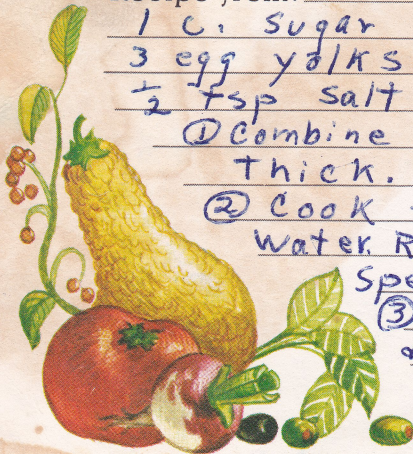 Recipe from:
1 c. Sugar
3 egg yolks
½ tsp salt
① Combine
Thick.
② Cook
Water. R
Spe
③